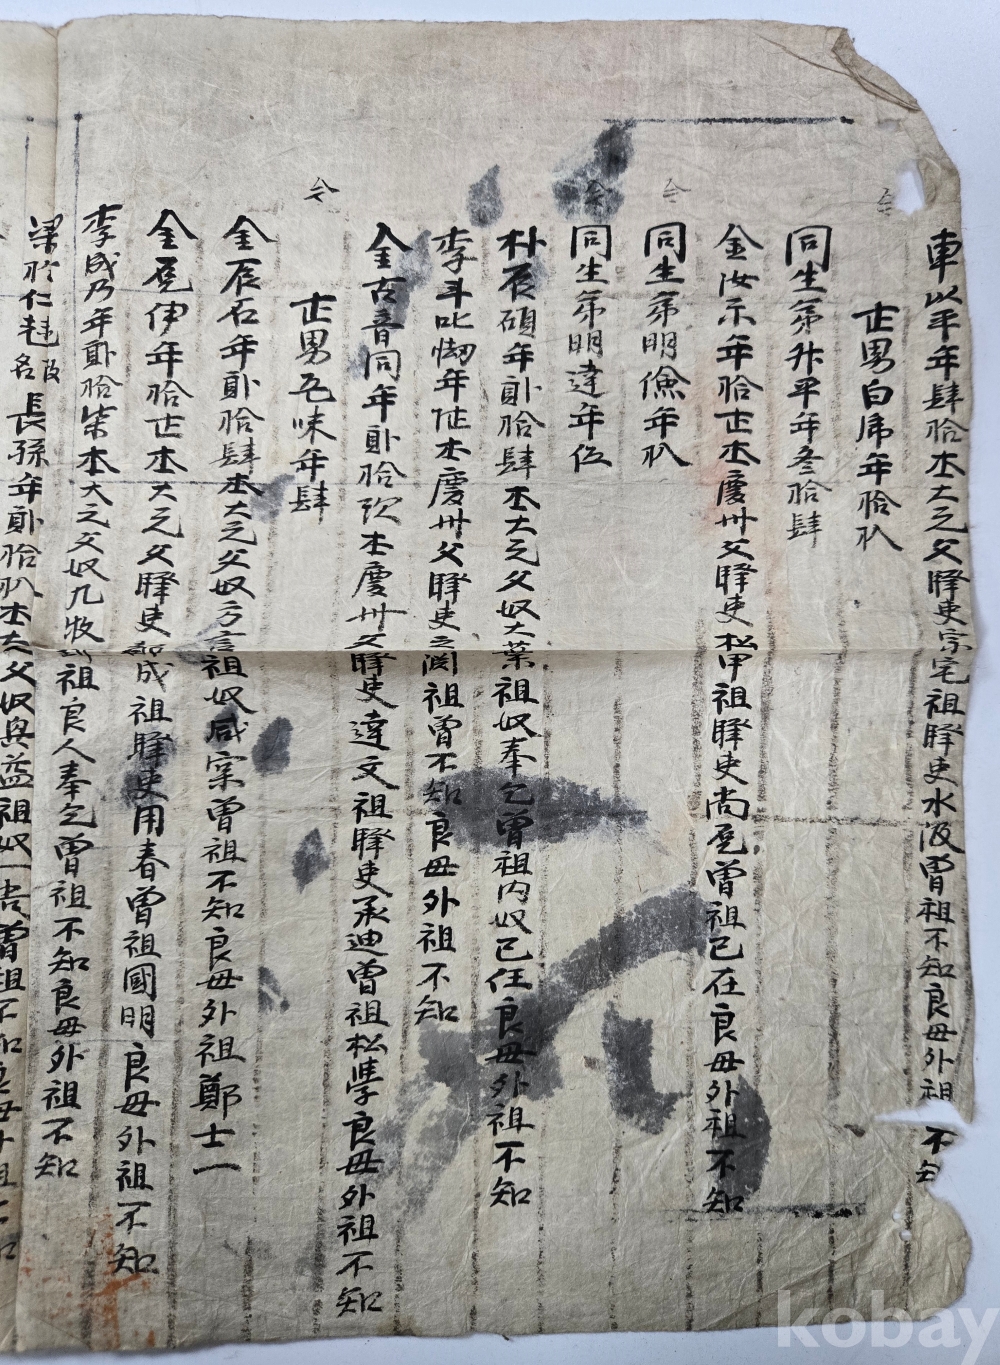 車以年年肆拾本大之父驛吏宗宅祖驛吏水汲曽祖不知良母外祖不知
世男白席年拾八
同生弟升平年叁拾肆
金汝示年拾世本慶州父驛吏祖驛吏尚曽祖己在良母外祖不知
同生弟明儉年八
同生弟明達年伍
朴辰碩年貳拾肆本大之父奴大葉祖奴奉乞曽祖內奴己任良母外祖不知
李斗叱年本慶州父驛吏祖曽不知良母外祖不知
金古音同年貳拾玖本慶州父驛吏達文祖驛吏承迪曽祖松學良母外祖不知
世男毛味年肆
金辰石年貳拾肆本大之父奴方言祖奴咸宗曽祖不知良母外祖鄭士一
金伊年拾世本大之父驛吏成祖驛吏用春曽祖國明良母外祖不知
李成乃年貳拾柒本大之父奴凡牧祖良人奉乞曽祖不知良母外祖不知
梁於仁長孫年貳拾八本大父奴與益祖奴一吉曽祖不知良母外祖不知
kobay